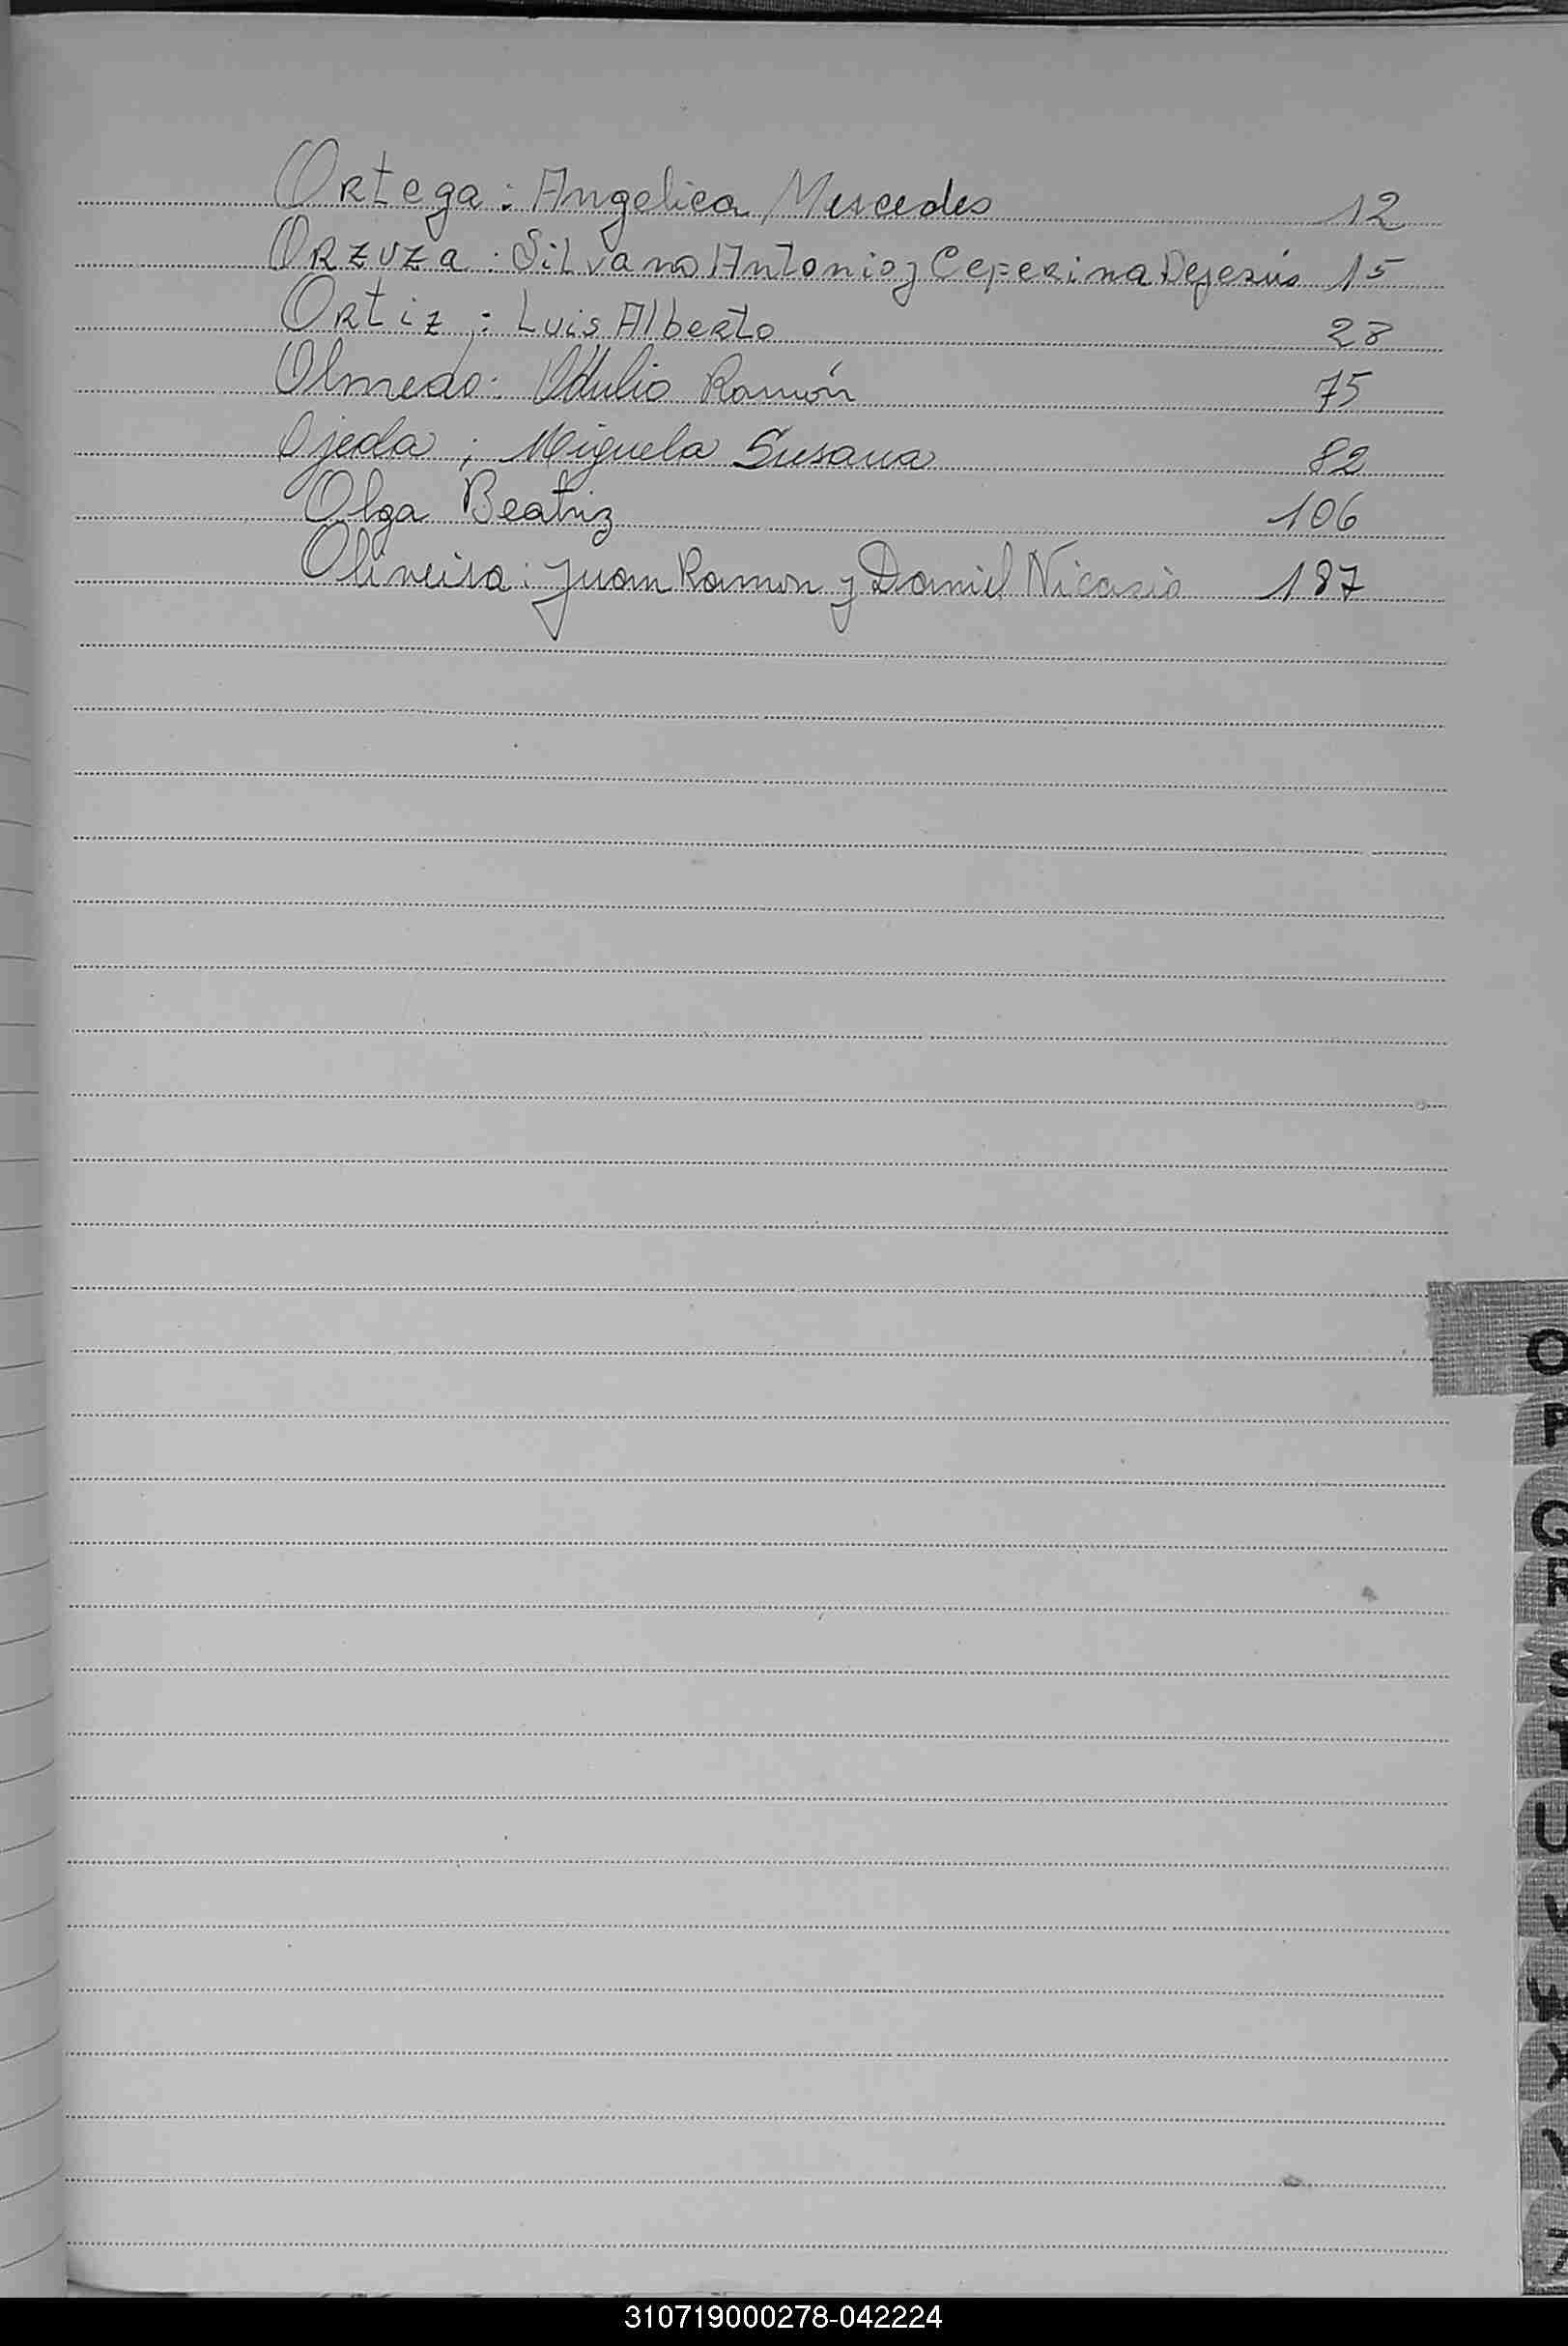 Ortega: Angelica Mercedes 12
Orzuza: Silvano Antonio y Ceferina Dejesús 15
Ortiz: Luis Alberto 28
Olmedo: Odulio Ramón 75
Ojeda; Miguela Susana 82
Olga Beatriz 106
Oliveira: Juan Ramon y Daniel Nicasio 187
O
P
Q
R
S
T
U
V
W
X
Y
Z
310719000278-042224